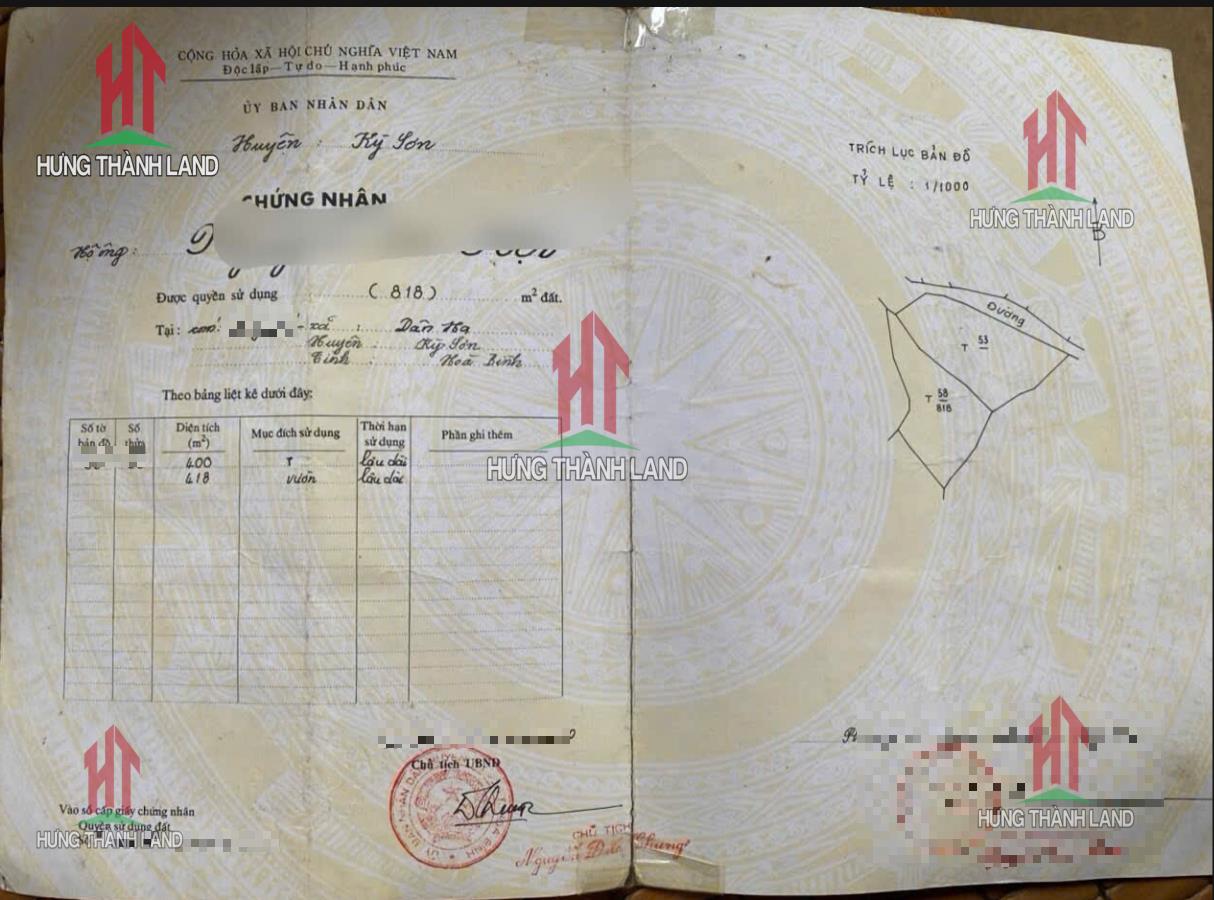 CỘNG HÒA XÃ HỘI CHỦ NGHĨA VIỆT NAM
Độc lập — Tự do — Hạnh phúc
ỦY BAN NHÂN DÂN
Huyện : Kỳ Sơn
CHỨNG NHẬN
Hộ ông:
Được quyền sử dụng (818) m² đất.
Tại : - xã : Dân Hạ
Huyện : Kỳ Sơn
Tỉnh : Hoà Bình
Theo bảng liệt kê dưới đây:
Số tờ bản đồ Số thửa Diện tích (m²) Mục đích sử dụng Thời hạn sử dụng Phần ghi thêm
400 T lâu dài
418 vườn lâu dài
Chủ tịch UBND
CHỦ TỊCH
Nguyễn Đức Chung
Vào sổ cấp giấy chứng nhận
Quyền sử dụng đất
TRÍCH LỤC BẢN ĐỒ
TỶ LỆ : 1/1000
B
Đường
T 53
T 58
818
HƯNG THÀNH LAND
HƯNG THÀNH LAND
HƯNG THÀNH LAND
HƯNG THÀNH LAND
HƯNG THÀNH LAND